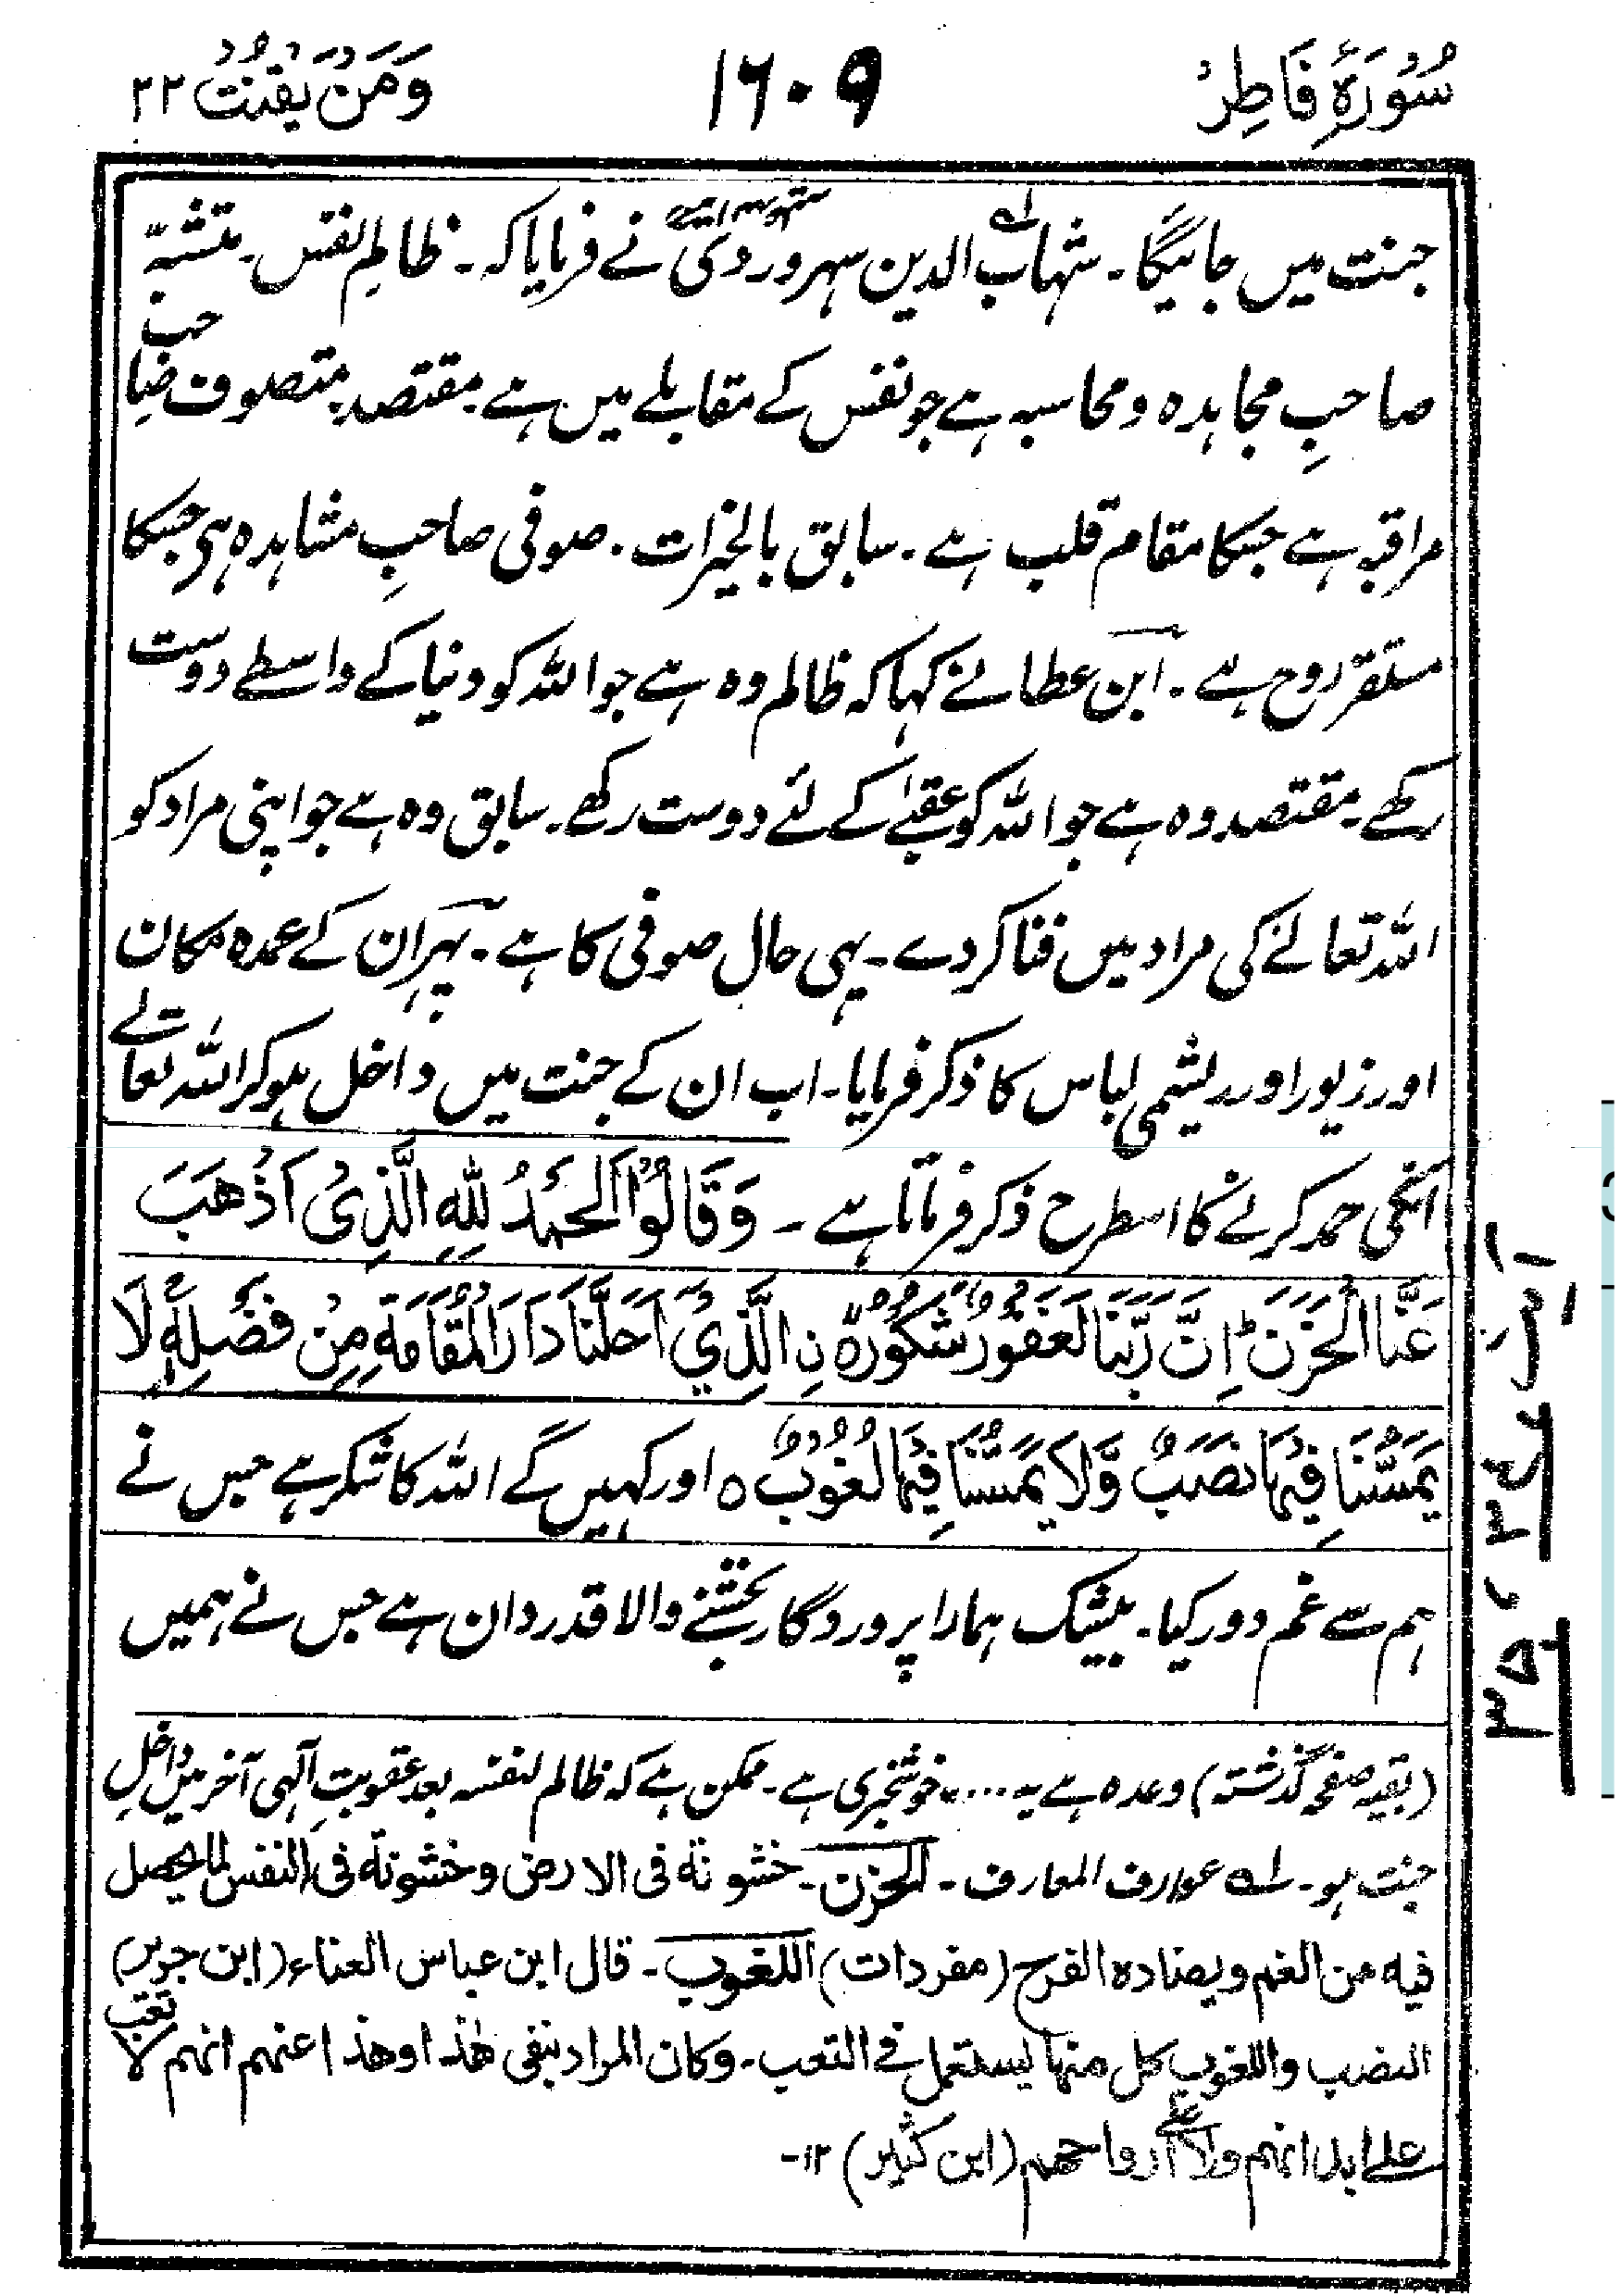 سُوْرَۃُ فَاطِرْ ۱۶۰۹ وَمَنْ یَقْنُتْ ۲۲
جنت میں جائیگا۔ شہاب الدین سہروردی نے فرمایا کہ۔ ظالمِ نفس۔ متشبّہ
صاحبِ مجاہدہ و محاسبہ ہے جو نفس کے مقابلے میں ہے۔ مقتصد۔ متصوف صاحب
مراقبہ ہے جسکا مقام قلب ہے۔ سابق بالخیرات۔ صوفی صاحبِ مشاہدہ ہی جسکا
مستقر روح ہے۔ ابن عطا نے کہا کہ ظالم وہ ہے جو اللہ کو دنیا کے واسطے دوست
رکھے۔ مقتصد وہ ہے جو اللہ کو عقبےٰ کے لئے دوست رکھے۔ سابق وہ ہے جو اپنی مراد کو
اللہ تعالےٰ کی مراد میں فنا کردے۔ یہی حال صوفی کا ہے۔ پہر ان کے عمدہ مکان
اور زیور اور ریشمی لباس کا ذکر فرمایا۔ اب ان کے جنت میں داخل ہوکر اللہ تعالےٰ
انکی حمد کرنے کا اسطرح ذکر فرماتا ہے۔ وَقَالُوا الْحَمْدُ لِلّٰہِ الَّذِیْ اَذْھَبَ
عَنَّا الْحَزَنَ ؕ اِنَّ رَبَّنَا لَغَفُوْرٌ شَکُوْرُ ۨ ہ نِ الَّذِیْ اَحَلَّنَا دَارَ الْمُقَامَۃِ مِنْ فَضْلِہٖ لَا
یَمَسُّنَا فِیْہَا نَصَبٌ وَّلَا یَمَسُّنَا فِیْہَا لُغُوْبٌ ہ اور کہیں گے اللہ کا شکر ہے جس نے
ہم سے غم دور کیا۔ بیشک ہمارا پروردگار بخشنے والا قدردان ہے جس نے ہمیں
آیت ۳۴ و ۳۵
(بقیہ صفحہ گذشتہ) وعدہ ہے یہ .... خوشخبری ہے۔ ممکن ہے کہ ظالم لنفسہ بعد عقوبتِ الٰہی آخر میں داخلِ
جنت ہو۔ لہ عوارف المعارف۔ الحزن۔ خشونۃ فی الارض وخشونۃ فی النفس لما یحصل
فیہ من الغم ویضادہ الفرح (مفردات) اللغوب۔ قال ابن عباس العناء (ابن جریر)
النصب واللغوب کل منہا یستعمل فی التعب۔ وکان المراد بنفی ھٰذا وھذا عنھم انھم لا تعب
علے ابدانھم ولا علے ارواحھم (ابن کثیر) ۱۲۔